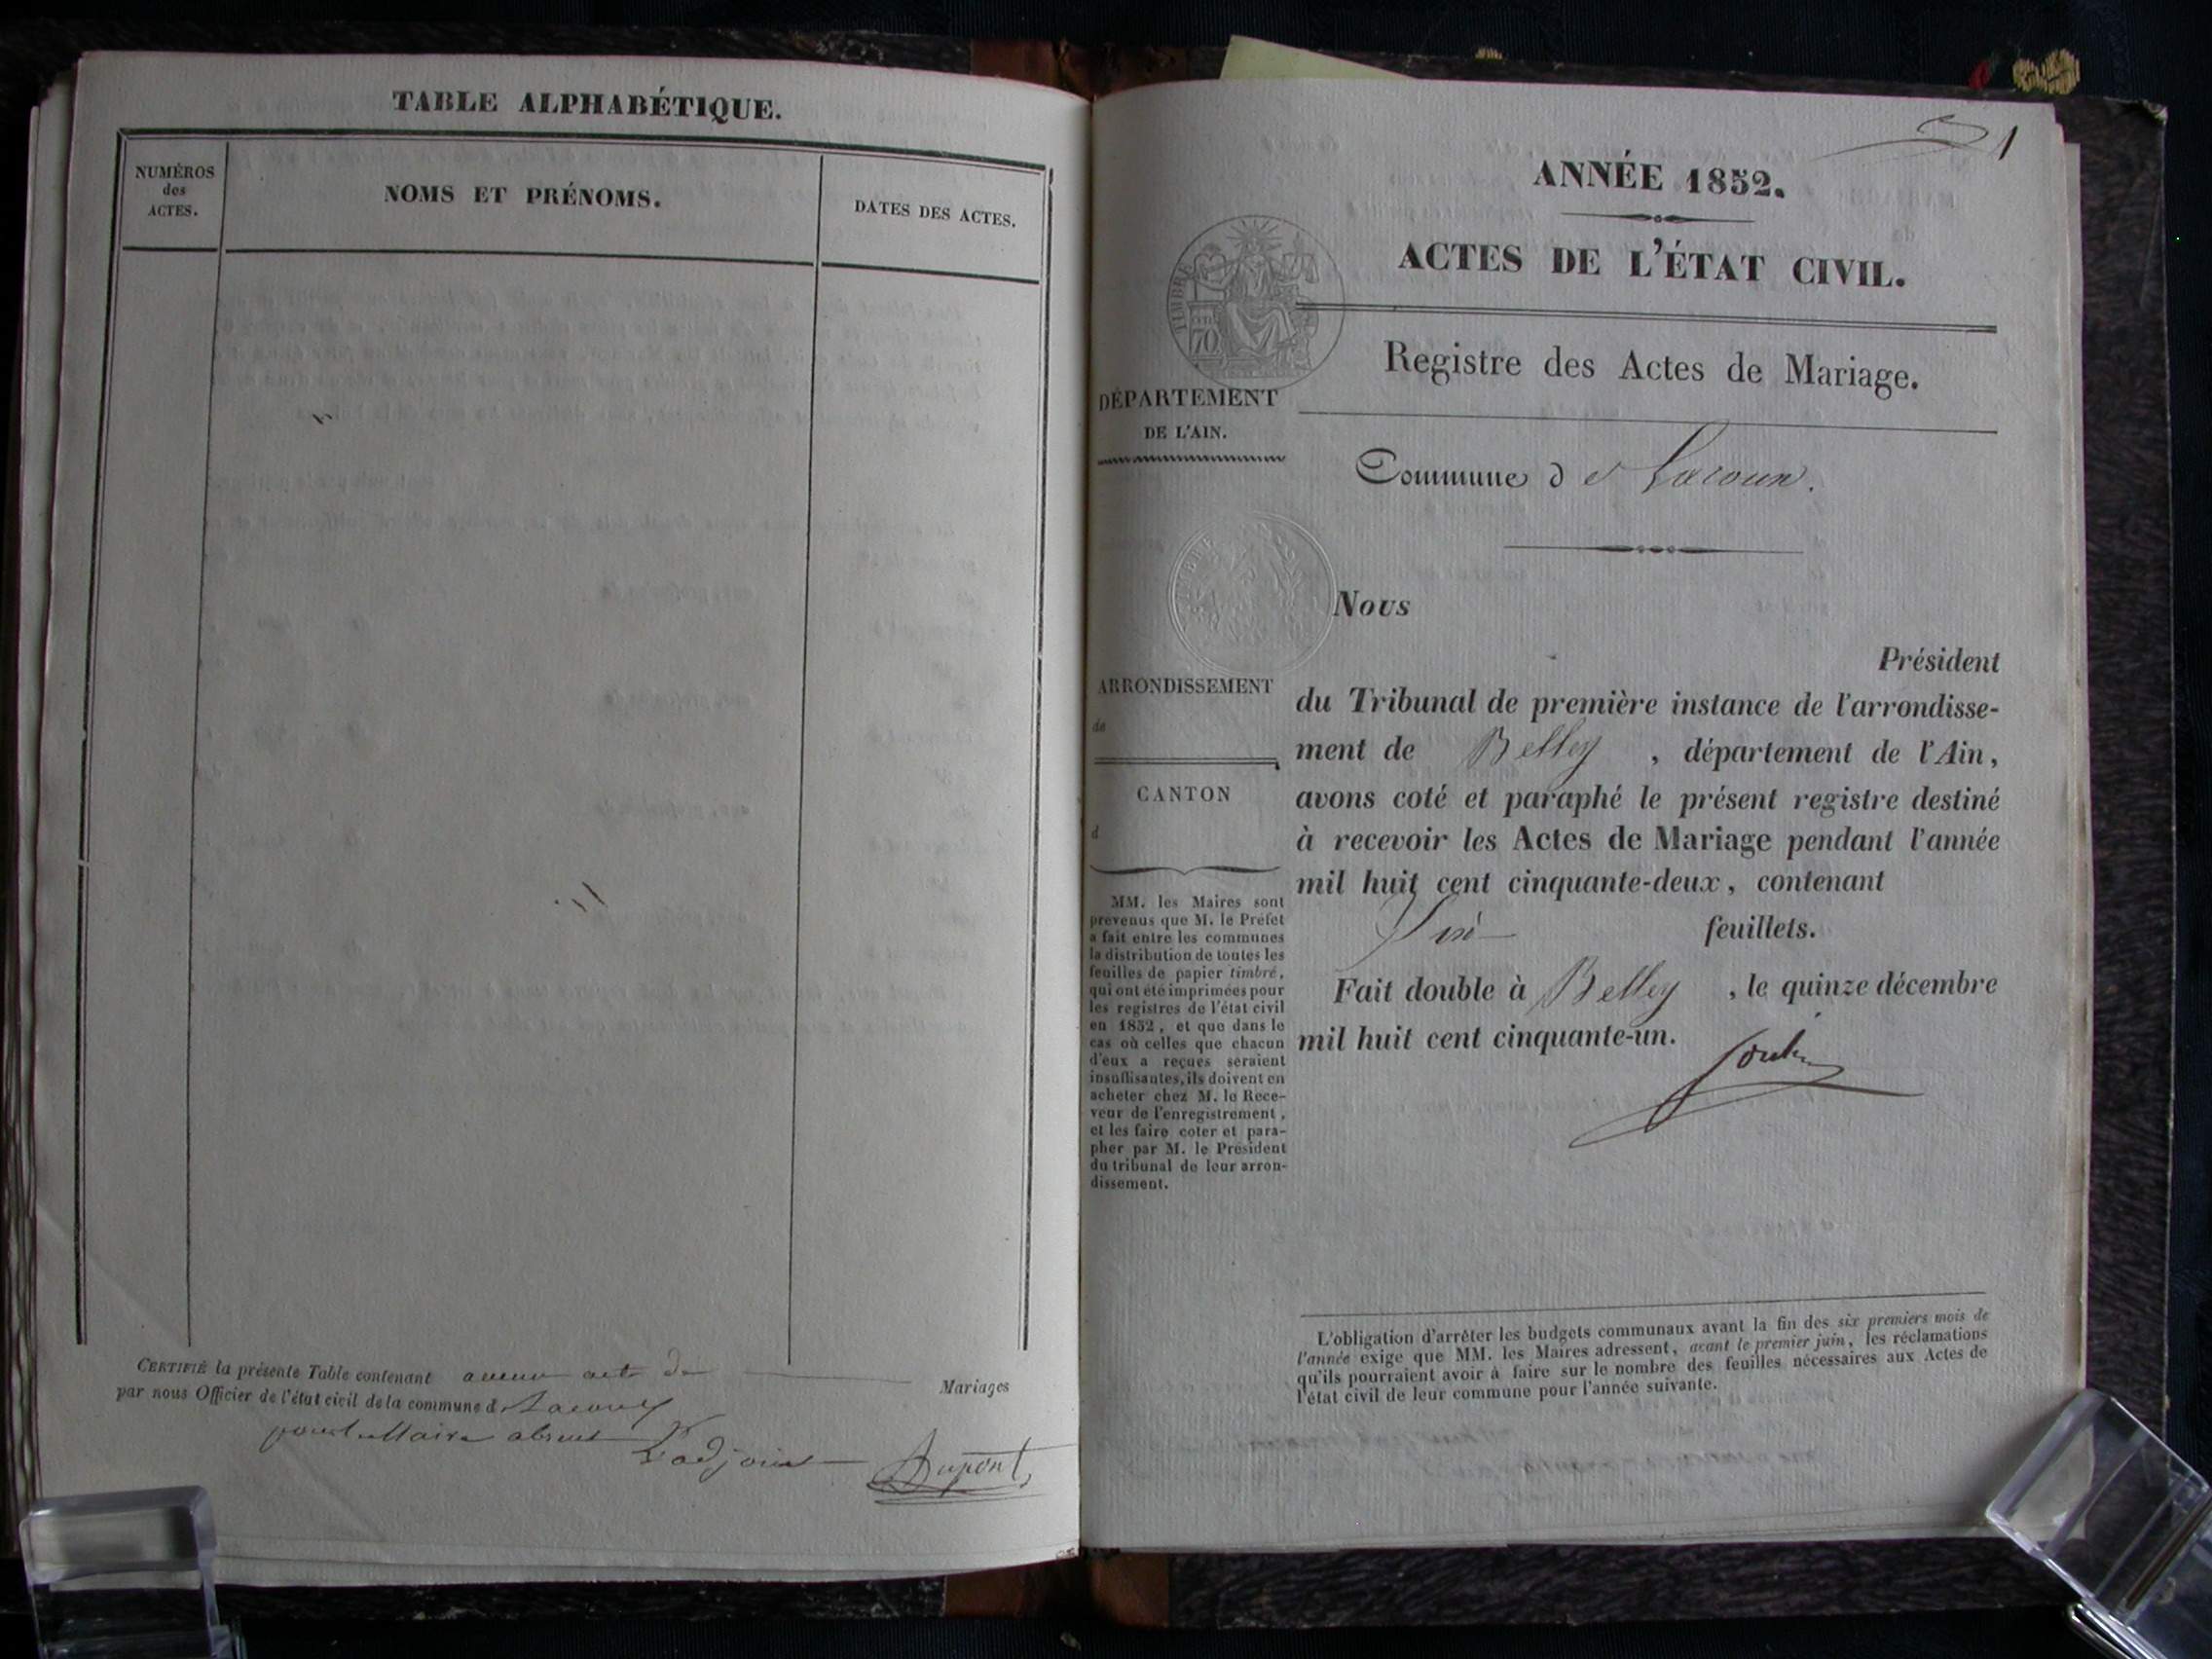 TABLE ALPHABÉTIQUE.
NUMÉROS
des
ACTES.
NOMS ET PRÉNOMS.
DATES DES ACTES.
CERTIFIÉ la présente Table contenant aucun acte de Mariages
par nous Officier de l'état civil de la commune d Lacoux
pour le Maire absent
L'adjoint Dupont
1
ANNÉE 1852.
ACTES DE L'ÉTAT CIVIL.
TIMBRE
70
Registre des Actes de Mariage.
DÉPARTEMENT
DE L'AIN.
Commune de Lacoux.
Nous
Président
du Tribunal de première instance de l'arrondisse-
ment de Belley, département de l'Ain,
avons coté et paraphé le présent registre destiné
à recevoir les Actes de Mariage pendant l'année
mil huit cent cinquante-deux, contenant
feuillets.
Fait double à Belley, le quinze décembre
mil huit cent cinquante-un.
ARRONDISSEMENT
de
CANTON
d
MM. les Maires sont
prévenus que M. le Préfet
a fait entre les communes
la distribution de toutes les
feuilles de papier timbré,
qui ont été imprimées pour
les registres de l'état civil
en 1852, et que dans le
cas où celles que chacun
d'eux a reçues seraient
insuffisantes, ils doivent en
acheter chez M. le Rece-
veur de l'enregistrement,
et les faire coter et para-
pher par M. le Président
du tribunal de leur arron-
dissement.
L'obligation d'arrêter les budgets communaux avant la fin des six premiers mois de
l'année exige que MM. les Maires adressent, avant le premier juin, les réclamations
qu'ils pourraient avoir à faire sur le nombre des feuilles nécessaires aux Actes de
l'état civil de leur commune pour l'année suivante.